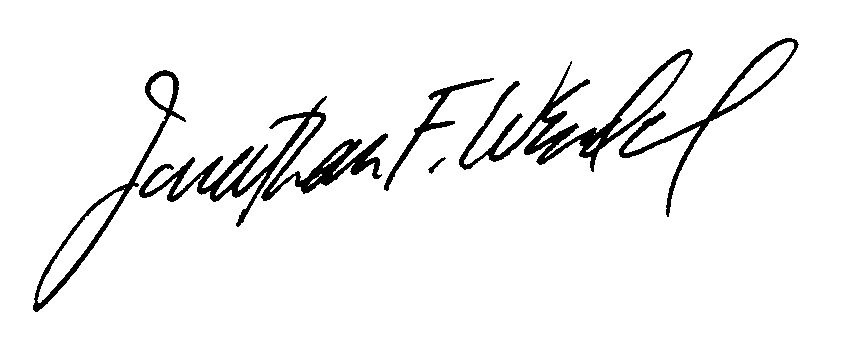 Jonathan F. Wendel